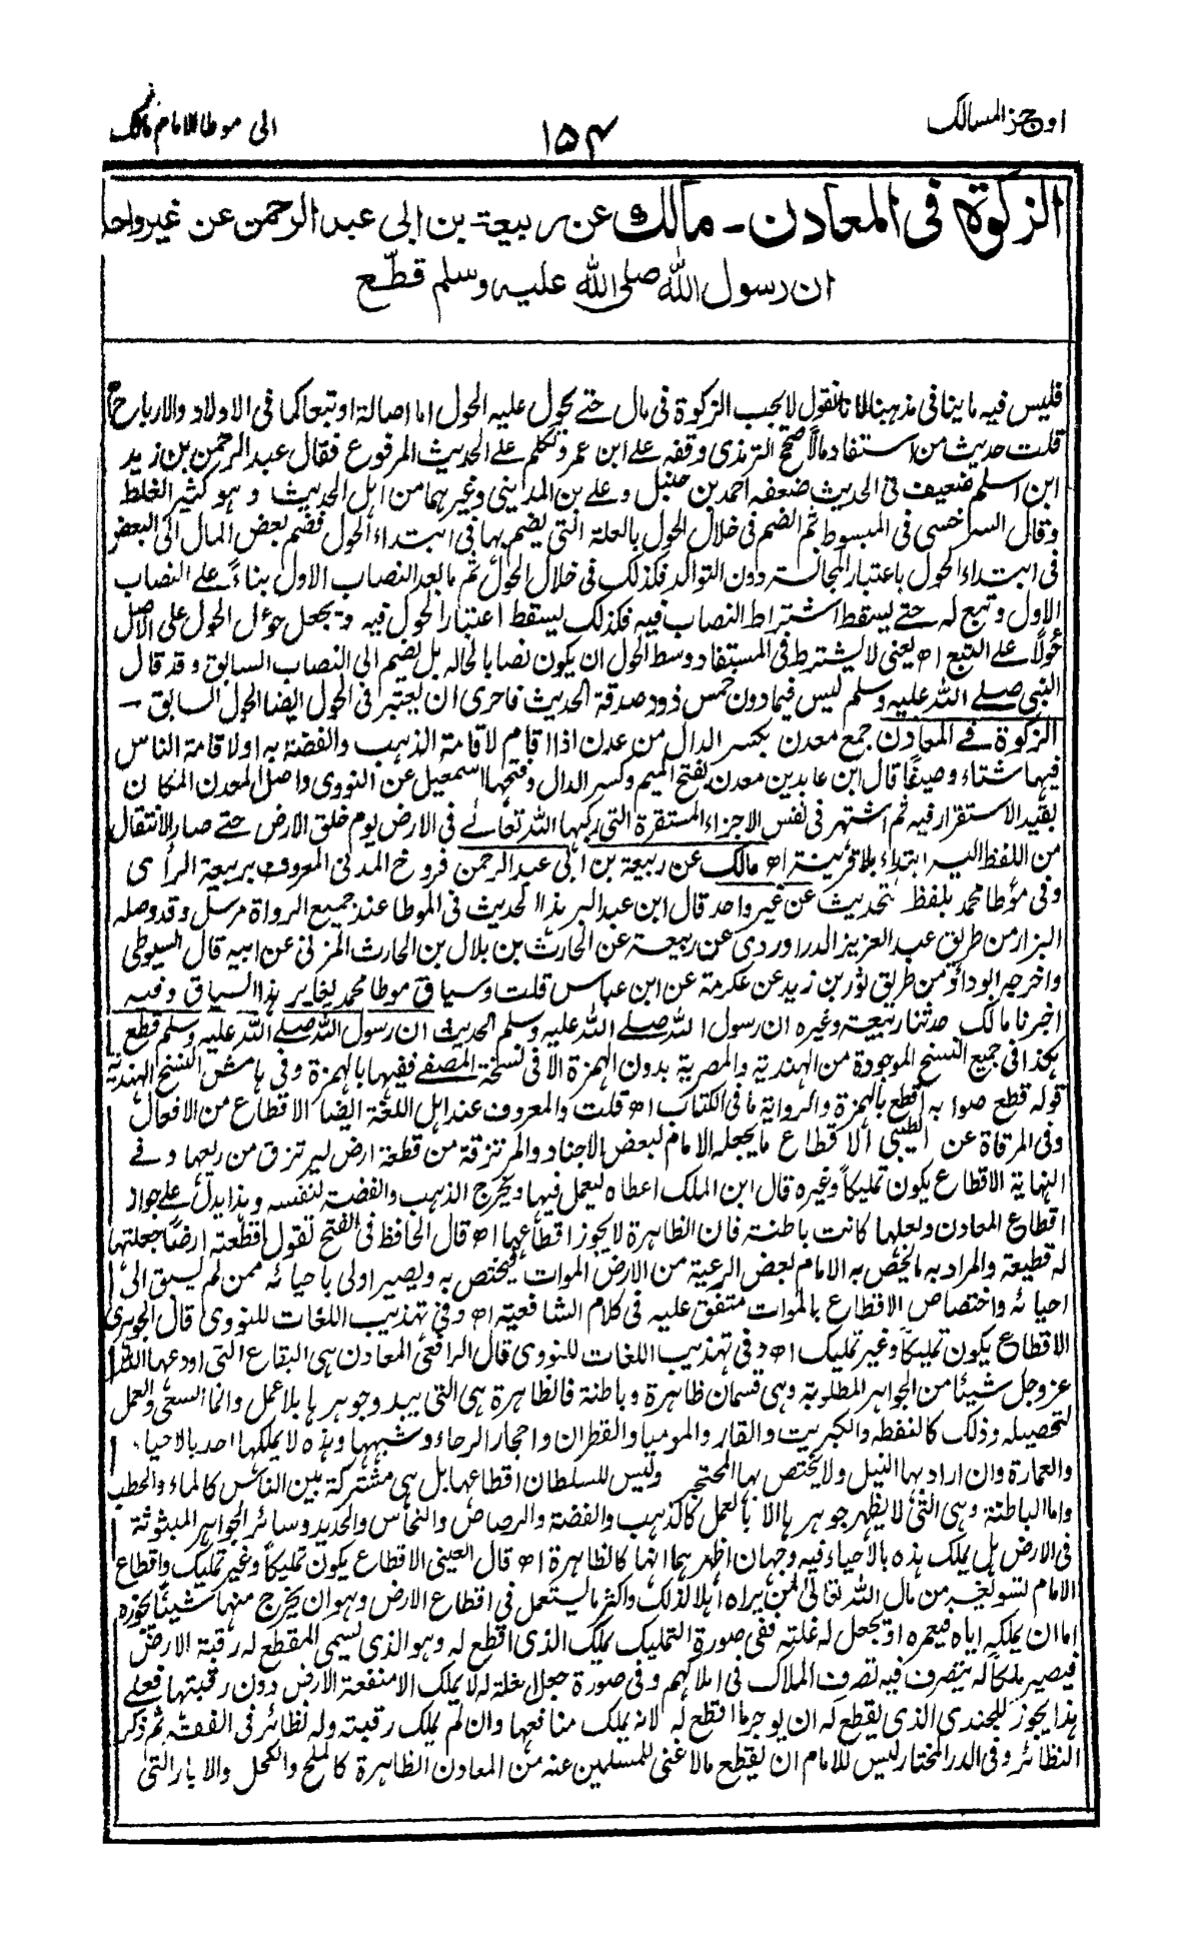 اوجز المسالک
۱۵۴
الی موطا الامام مالک
الزکوة فی المعادن ـ مالك عن ربیعة بن ابی عبد الرحمن عن غیر واحد
ان رسول الله صلی الله علیه وسلم قطّع
فلیس فیه ما ینافی مذهبنا لانا نقول لا یجب الزکوة فی مال حتے یحول علیه الحول اما اصالة او تبعا کما فی الاولاد والارباح
قلت حدیث من استفاد مالا صحح الترمذی وقفه علے ابن عمر وتکلم علے الحدیث المرفوع فقال عبد الرحمن بن زید
ابن اسلم ضعیف فی الحدیث ضعفه احمد بن حنبل و علے بن المدینی وغیرهما من اهل الحدیث و هو کثیر الغلط
وقال السرخسی فی المبسوط ثم الضم فی خلال الحول بالعلة التی یضم بها فی ابتداء الحول فضم بعض المال الی البعض
فی ابتداء الحول باعتبار المجانسة دون التوالد فکذلک فی خلال الحول ثم ما بعد النصاب الاول بناءً علے النصاب
الاول وتبع له حتے یسقط اشتراط النصاب فیه فکذلک یسقط اعتبار الحول فیه ویجعل حؤل الحول علی الاصل
حؤلًا علے التبع اھ یعنی لا یشترط فی المستفاد وسط الحول ان یکون نصابا لحاله بل یضم الی النصاب السابق وقد قال
النبی صلے الله علیه وسلم لیس فیما دون خمس ذود صدقة الحدیث فاحری ان یعتبر فی الحول ایضا الحول السابق ـ
الزکوة فے المعادن جمع معدن بکسر الدال من عدن اذا اقام لاقامة الذهب والفضة به او لاقامة الناس
فیها شتاء وصیفًا قال ابن عابدین معدن بفتح المیم وکسر الدال وفتحها اسمعیل عن النووی واصل المعدن المکان
بقید الاستقرار فیه ثم اشتهر فی نفس الاجزاء المستقرة التی رکبها الله تعالے فی الارض یوم خلق الارض حتے صار الانتقال
من اللفظ الیه ابتداء بلا قرینة اھ مالک عن ربیعة بن ابی عبد الرحمن فروخ المدنی المعروف بربیعة الرأی
وفی مؤطا محمد بلفظ التحدیث عن غیر واحد قال ابن عبد البر هذا الحدیث فی الموطا عند جمیع الرواة مرسل وقد وصله
البزار من طریق عبد العزیز الدراوردی عن ربیعة عن الحارث بن بلال بن الحارث المزنی عن ابیه قال السیوطی
واخرجه ابو داؤد من طریق ثور بن زید عن عکرمة عن ابن عباس قلت وسیاق موطا محمد یغایر هذا السیاق وفیه
اخبرنا مالک حدثنا ربیعة وغیره ان رسول الله صلے الله علیه وسلم الحدیث ان رسول الله صلے الله علیه وسلم قطع
هکذا فی جمیع النسخ الموجودة من الهندیة والمصریة بدون الهمزة الا فی نسخة المصفے ففیها بالهمزة وفی هامش النسخ الهندیة
قوله قطع صوابه اقطع بالهمزة والروایة ما فی الکتاب اھ قلت والمعروف عند اهل اللغة ایضا الاقطاع من الافعال
وفی المرقاة عن الطیبی الاقطاع ما یجعله الامام لبعض الاجناد والمرتزقة من قطعة ارض لیرتزق من ریعها وفے
النهایة الاقطاع یکون تملیکاً وغیره قال ابن الملک اعطاه لیعمل فیها ویخرج الذهب والفضة لنفسه وهذا یدل علے جواز
اقطاع المعادن ولعلها کانت باطنة فان الظاهرة لا یجوز اقطاعها اھ قال الحافظ فی الفتح تقول اقطعته ارضا جعلتها
له قطیعة والمراد به ما یخص به الامام بعض الرعیة من الارض الموات فیختص به ویصیر اولی باحیائه ممن لم یسبق الی
احیائه واختصاص الاقطاع بالموات متفق علیه فی کلام الشافعیة اھ وفی تهذیب اللغات للنووی قال الجوهری
الاقطاع یکون تملیکاً وغیر تملیک اھ وفی تهذیب اللغات للنووی قال الرافعی المعادن هی البقاع التی اودعها الله
عز وجل شیئا من الجواهر المطلوبة وهی قسمان ظاهرة وباطنة فالظاهرة هی التی یبدو جوهرها بلا عمل وانما السعی والعمل
لتحصیله وذلک کالنفطه والکبریت والقار والمومیا والقطران واحجار الرحاء وشبهها وهذه لا یملکها احد بالاحیاء
والعمارة وان اراد بها النیل ولا یختص بها المحتجر ولیس للسلطان اقطاعها بل هی مشترکة بین الناس کالماء والحطب
واما الباطنة وهی التی لا یظهر جوهرها الا بالعمل کالذهب والفضة والرصاص والنحاس والحدید وسائر الجواهر المبثوثة
فی الارض هل یملک هذه بالاحیاء فیه وجهان اظهرهما انها کالظاهرة اھ قال العینی الاقطاع یکون تملیکاً وغیر تملیک واقطاع
الامام تسویغه من مال الله تعالی لمن یراه اهلا لذلک واکثر ما یستعمل فی اقطاع الارض وهو ان یخرج منها شیئا یحوزه
اما ان یملکه ایاه فیعمره او یجعل له غلته ففی صورة التملیک یملک الذی اقطع له وهو الذی یسمی المقطع له رقبة الارض
فیصیر ملکا له یتصرف فیه تصرف الملاک فی املاکهم وفی صورة جعل الغلة له لا یملک الا منفعة الارض دون رقبتها فعلے
هذا یجوز للجندی الذی یقطع له ان یوجر ما اقطع له لانه یملک منافعها وان لم یملک رقبته وله نظائر فی الفقه ثم ذکر
النظائر وفی الدر المختار لیس للامام ان یقطع مالا غنی للمسلمین عنه من المعادن الظاهرة کالملح والکحل والابار التی